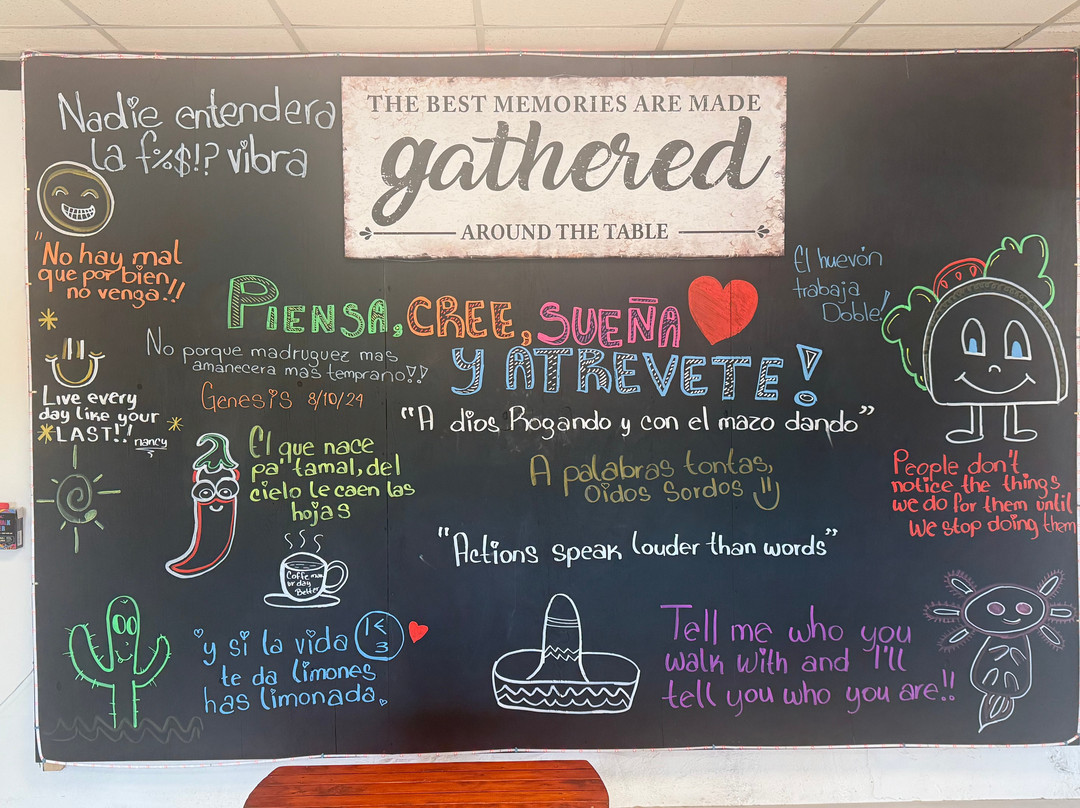 Nadie entendera
la f%$!? vibra
THE BEST MEMORIES ARE MADE
gathered
AROUND THE TABLE
"No hay mal
que por bien
no venga!!
El huevón
trabaja
Doble!
PIENSA, CREE, SUEÑA
Y ATREVETE!
No porque madruguez mas
amanecera mas temprano!!
Genesis 8/10/24
Live every
day like your
LAST!!
nancy
"A dios Rogando y con el mazo dando"
El que nace
pa' tamal, del
cielo le caen las
hojas
A palabras tontas,
Oidos Sordos
People don't
notice the things
we do for them until
We stop doing them
"Actions speak louder than words"
Coffe
ur day
Better
y si la vida
te da limones
has limonada.
Tell me who you
walk with and I'll
tell you who you are!!